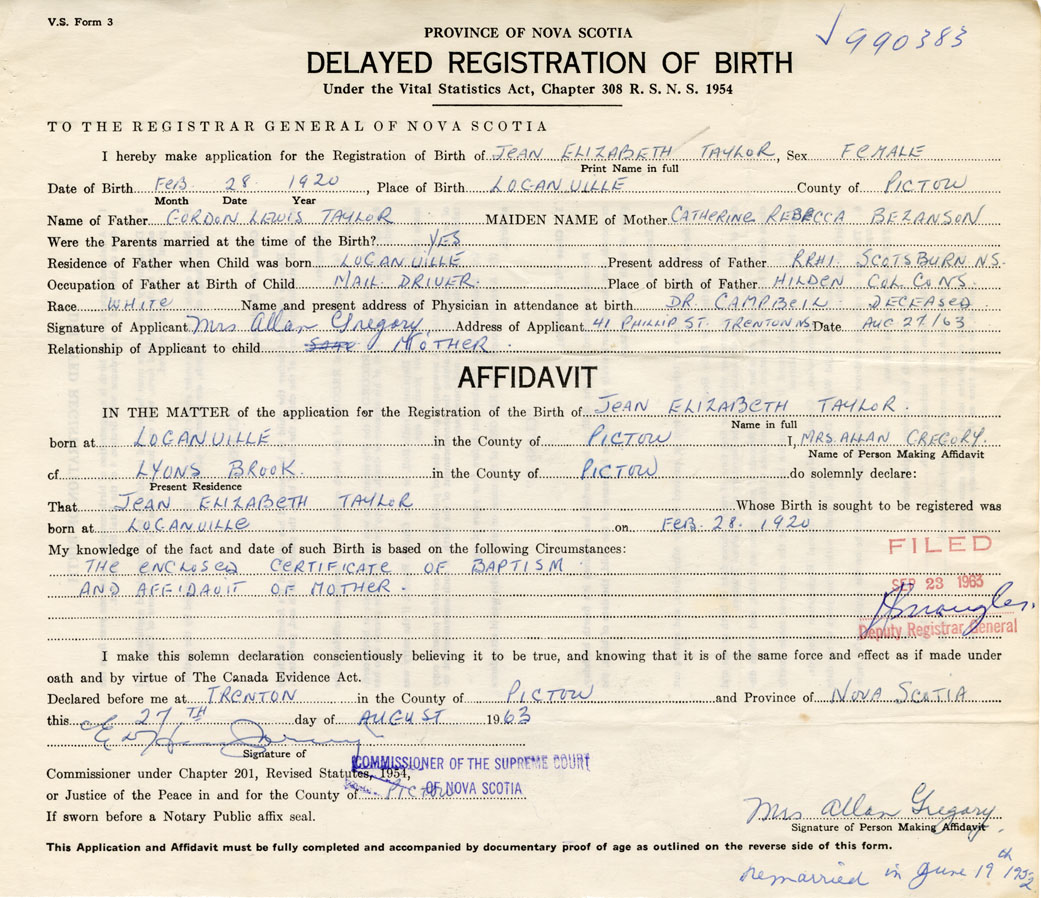 V.S. Form 3
PROVINCE OF NOVA SCOTIA
990383
DELAYED REGISTRATION OF BIRTH
Under the Vital Statistics Act, Chapter 308 R. S. N. S. 1954
TO THE REGISTRAR GENERAL OF NOVA SCOTIA
I hereby make application for the Registration of Birth of JEAN ELIZABETH TAYLOR, Sex FEMALE
Print Name in full
Date of Birth FEB. 28 1920, Place of Birth LOGANVILLE County of PICTOU
Month Date Year
Name of Father GORDON LEWIS TAYLOR MAIDEN NAME of Mother CATHERINE REBECCA BEZANSON
Were the Parents married at the time of the Birth? YES
Residence of Father when Child was born LOGANVILLE Present address of Father RR#1 SCOTSBURN N.S.
Occupation of Father at Birth of Child MAIL DRIVER. Place of birth of Father HILDEN COL. CO NS.
Race WHITE Name and present address of Physician in attendance at birth DR. CAMPBELL DECEASED
Signature of Applicant Mrs Allan Gregory, Address of Applicant 41 PHILLIP ST. TRENTON NS Date AUG 27/63
Relationship of Applicant to child MOTHER.
AFFIDAVIT
IN THE MATTER of the application for the Registration of the Birth of JEAN ELIZABETH TAYLOR.
Name in full
born at LOGANVILLE in the County of PICTOU I, MRS. ALLAN GREGORY.
Name of Person Making Affidavit
of LYONS BROOK. in the County of PICTOU do solemnly declare:
Present Residence
That JEAN ELIZABETH TAYLOR Whose Birth is sought to be registered was
born at LOGANVILLE on FEB. 28. 1920
My knowledge of the fact and date of such Birth is based on the following Circumstances:
FILED
THE ENCLOSED CERTIFICATE OF BAPTISM
SEP 23 1963
AND AFFIDAVIT OF MOTHER.
Deputy Registrar General
I make this solemn declaration conscientiously believing it to be true, and knowing that it is of the same force and effect as if made under
oath and by virtue of The Canada Evidence Act.
Declared before me at TRENTON in the County of PICTOU and Province of NOVA SCOTIA
this 27TH day of AUGUST 1963
Signature of
COMMISSIONER OF THE SUPREME COURT
Commissioner under Chapter 201, Revised Statutes, 1954,
OF NOVA SCOTIA
or Justice of the Peace in and for the County of PICTOU
If sworn before a Notary Public affix seal.
Mrs Allan Gregory
Signature of Person Making Affidavit
This Application and Affidavit must be fully completed and accompanied by documentary proof of age as outlined on the reverse side of this form.
remarried in June 19th 1952